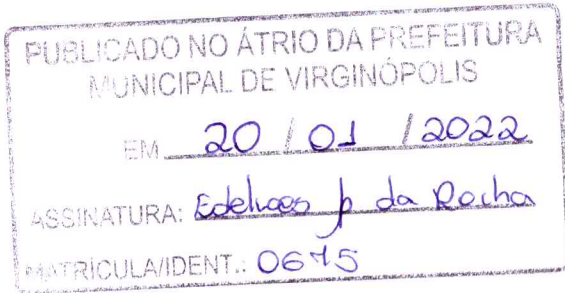 PUBLICADO NO ÁTRIO DA PREFEITURA
MUNICIPAL DE VIRGINÓPOLIS
EM 20 / 01 / 2022
ASSINATURA: da Rocha
MATRÍCULA/IDENT.: 0675